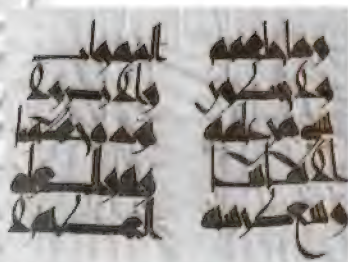 وما خلفهم
ولا يحيطون
بشي من علمه
الا بما شا
وسع كرسيه
السموات
والارض ولا
يوده حفظهما
وهو العلي
العظيم لا